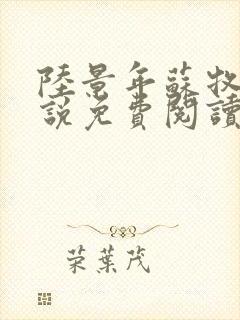 陸景年蘇牧
說免費閱讀
荣葉茂